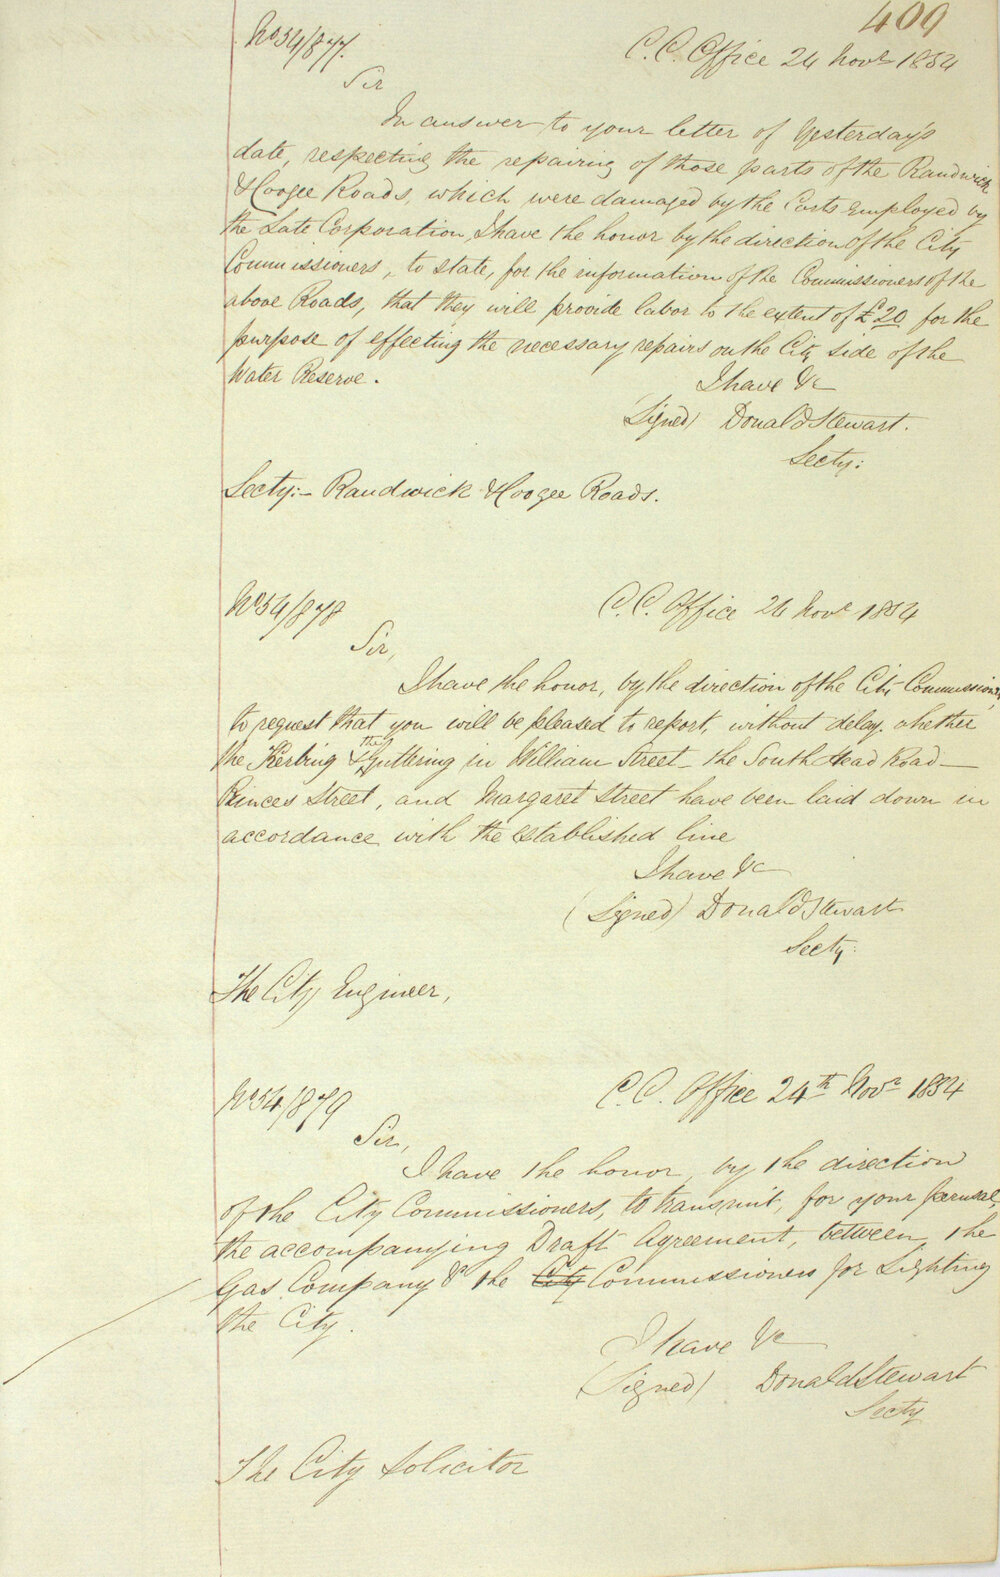 409
No 54/877.
C. C. Office 24 Novr 1854
Sir
In answer to your letter of Yesterday's
date, respecting the repairing of those parts of the Randwick
& Coogee Roads, which were damaged by the Carts employed by
the Late Corporation, I have the honor by the direction of the City
Commissioners, to state, for the information of the Commissioners of the
above Roads, that they will provide labor to the extent of £20 for the
purpose of effecting the necessary repairs on the City side of the
Water Reserve.
I have &c
(Signed) Donald Stewart.
Secty:
Secty:- Randwick & Coogee Roads.
No 54/878
C. C. Office 24 Novr 1854
Sir,
I have the honor, by the direction of the City Commissioners,
to request that you will be pleased to report, without delay, whether
the Kerbing & the Guttering in William Street - the South Head Road -
Princes Street, and Margaret Street have been laid down in
accordance with the established line
I have &c
(Signed) Donald Stewart
Secty.
The City Engineer,
No 54/879
C. C. Office 24th Novr 1854
Sir,
I have the honor, by the direction
of the City Commissioners, to transmit, for your perusal,
the accompanying Draft Agreement, between the
Gas Company & the City Commissioners for Lighting
the City.
I have &c
(Signed) Donald Stewart
Secty
The City Solicitor